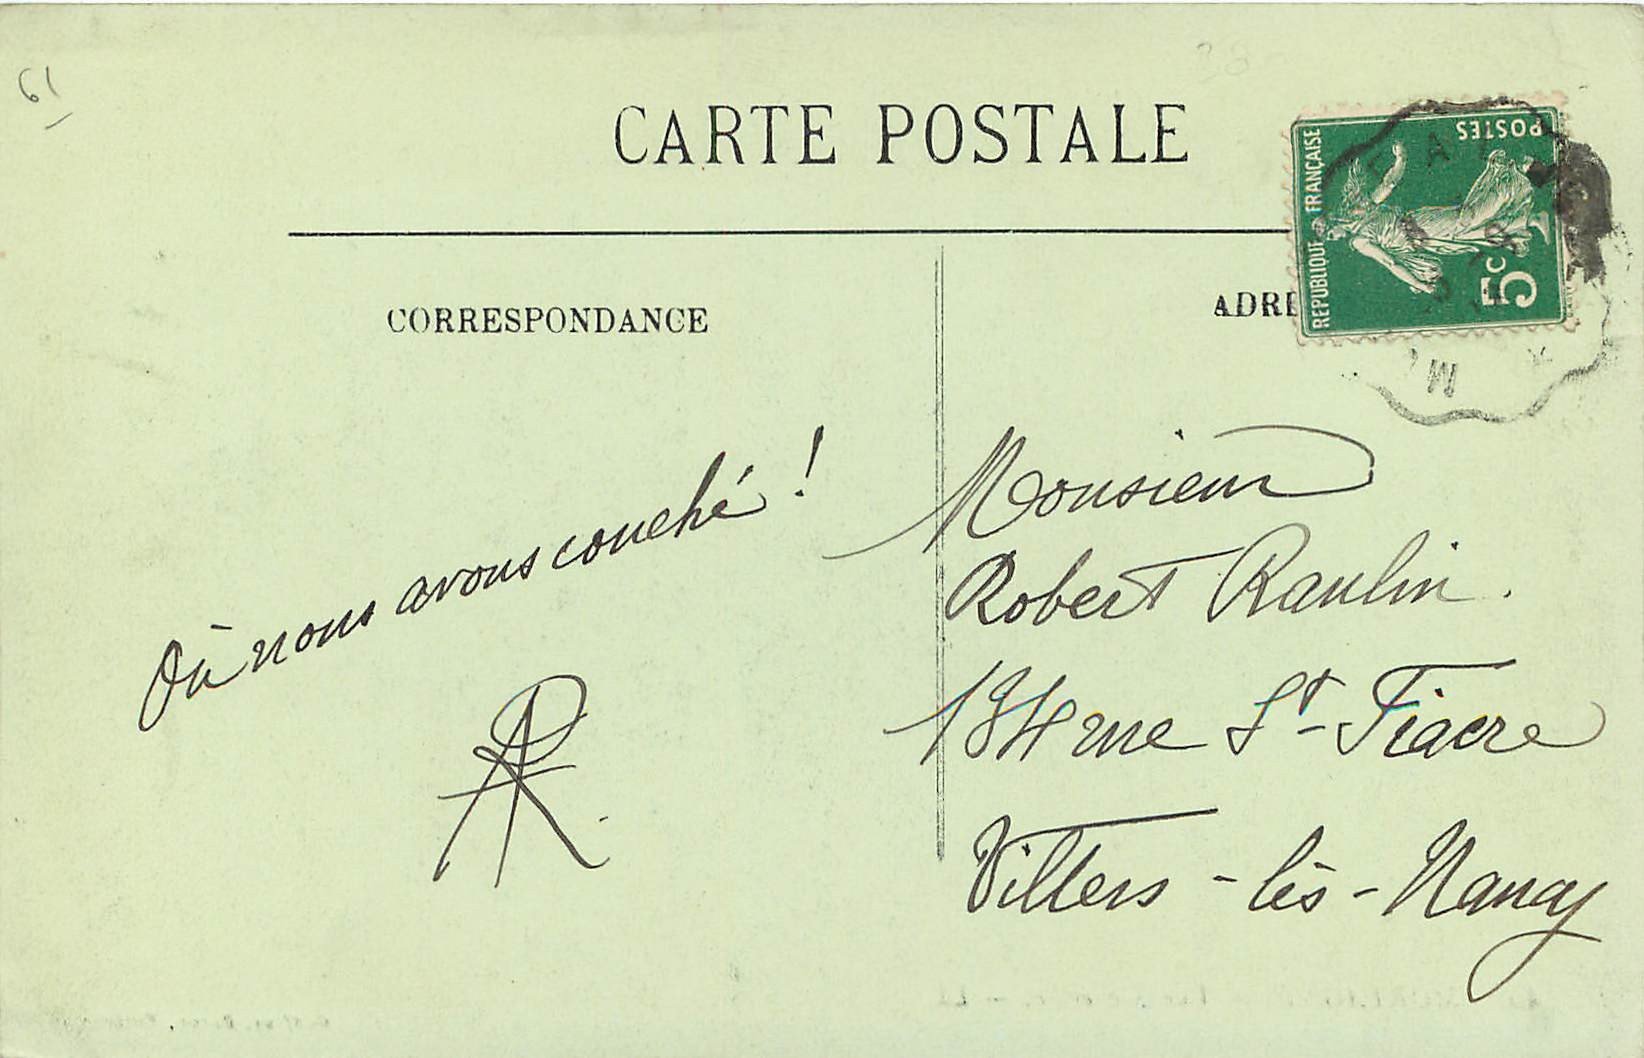 61
38
CARTE POSTALE
REPUBLIQUE FRANÇAISE
POSTES
5c
CORRESPONDANCE
ADRE
M
Où nous avons couché !
AR.
Monsieur
Robert Raulin.
134 rue St-Fiacre
Villers-lès-Nancy